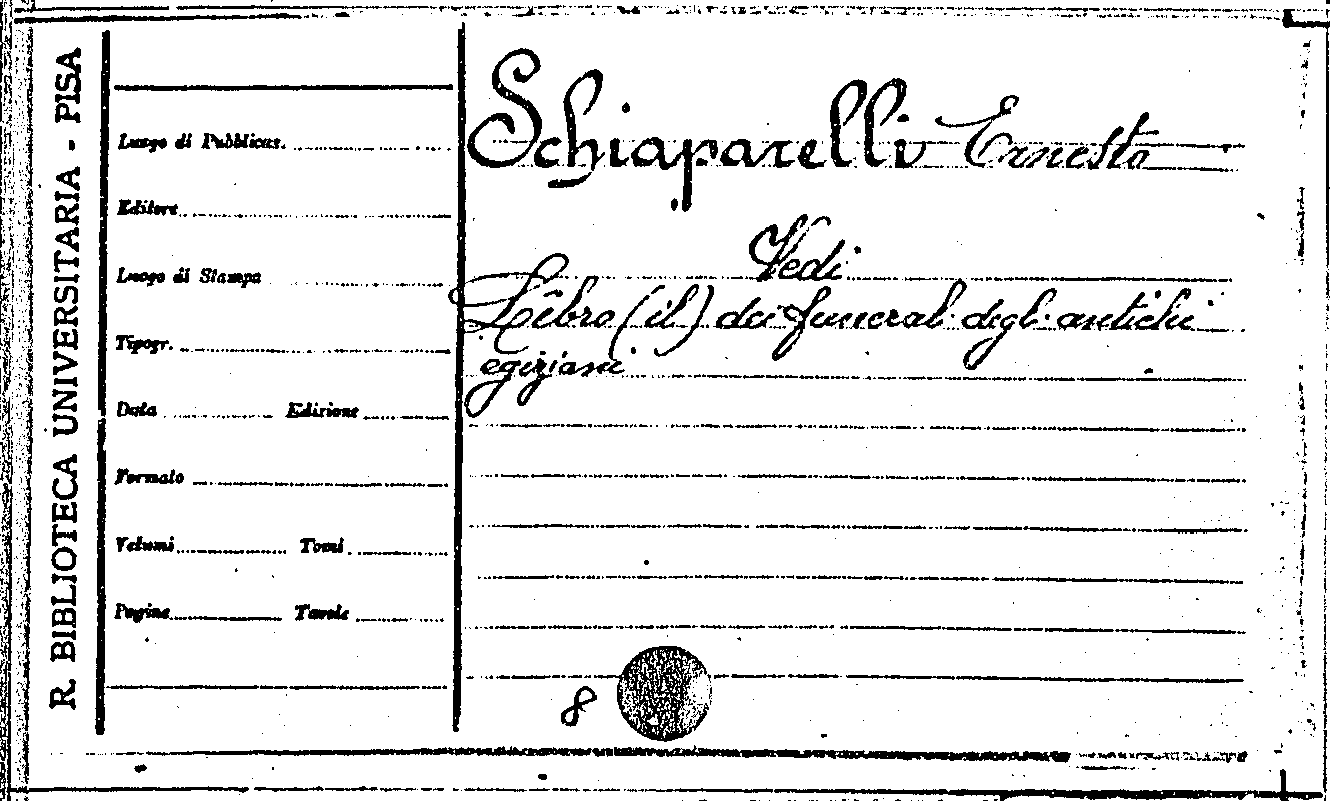 R. BIBLIOTECA UNIVERSITARIA - PISA
Luogo di Pubblicaz.
Editore
Luogo di Stampa
Tipogr.
Data Edizione
Formato
Volumi Tomi
Pagine Tavole
Schiaparelli Ernesto
Vedi
Libro (il) dei funerali degli antichi
egiziani
8